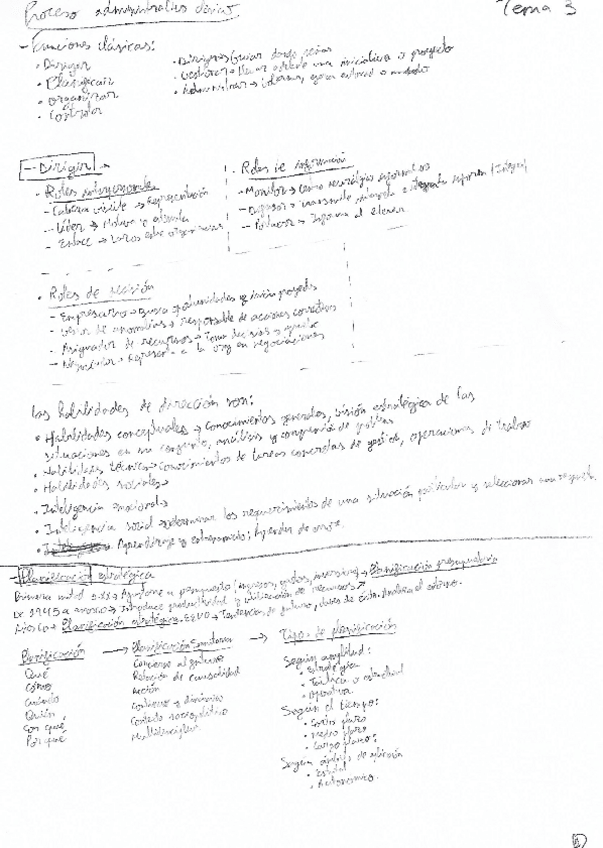 Proceso administrativo básico
Tema 3
- Funciones clásicas:
• Dirigir
• Planificar
• Organizar
• Controlar
• Dirigir → guiar
• Gestionar → llevar adelante una iniciativa o proyecto
• Administrar →
- Dirigir →
• Roles interpersonales
- Cabeza visible → Representación
- Líder → Motiva y estimula
- Enlace → Lazos entre organizaciones
• Roles de información
- Monitor → como neurálgico informativo
- Difusor → transmite
- Portavoz → Informa al
• Roles de decisión
- Empresario → Busca oportunidades y inicia proyectos
- Gestor de anomalías → responsable de acciones correctivas
- Asignador de recursos → Toma decisiones
- Negociador → Representa a la org en negociaciones
Las habilidades de dirección son:
• Habilidades conceptuales → Conocimientos generales, visión estratégica de las
situaciones en su conjunto, análisis y comprensión de
• Habilidades técnicas → Conocimientos de tareas concretas de gestión, operaciones de trabajo
• Habilidades sociales →
• Inteligencia emocional →
• Inteligencia social → determinar los requerimientos de una situación particular y seleccionar una
• Aprendizaje y entrenamiento; Aprender de
- Planificación estratégica
presupuesto (ingresos, gastos, inversión) → Planificación presupuestaria
De 1945 a → Introduce productividad y utilización de recursos
→ Planificación estratégica. EEUU → Tendencias de futuro, Analiza el entorno.
Planificación
Qué
Cómo
Cuándo
Quién
Con qué
Por qué
→ Planificación Sanitaria
Concierne al futuro
Relación de causalidad
Acción
Continuo y dinámico
Contexto sociopolítico
Multidisciplinar
→ Tipos de planificación
Según amplitud:
• Estratégica
• Táctica o estructural
• Operativa.
Según el tiempo:
• Corto plazo
• Medio plazo
• Largo plazo:
Según ámbito de aplicación
• Estatal
• Autonómico.